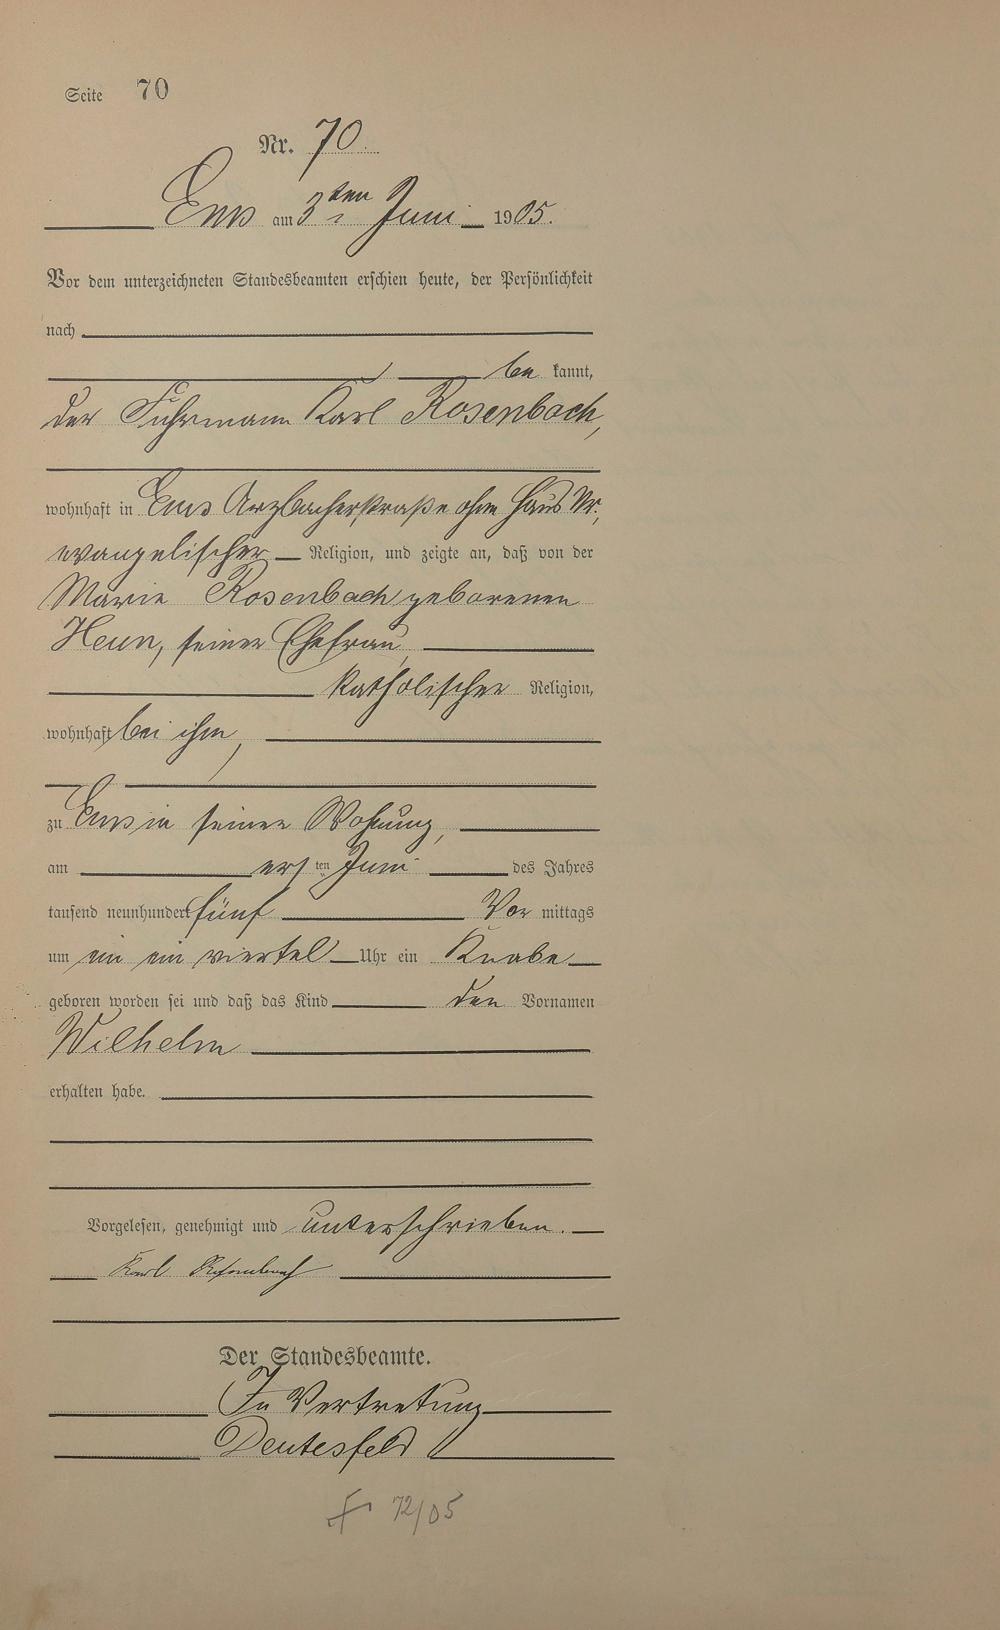 Seite 70
Nr. 70.
Ems am 3ten Juni 1905.
Vor dem unterzeichneten Standesbeamten erschien heute, der Persönlichkeit
nach
be kannt,
der Fuhrmann Karl Rosenbach,
wohnhaft in Ems Arzbacherstraße ohne Haus Nr.,
evangelischer Religion, und zeigte an, daß von der
Marie Rosenbach geborenen
Heun, seiner Ehefrau,
katholischer Religion,
wohnhaft bei ihm,
zu Ems in seiner Wohnung,
am ersten Juni des Jahres
tausend neunhundert fünf Vor mittags
um ein ein viertel Uhr ein Knabe
geboren worden sei und daß das Kind den Vornamen
Wilhelm
erhalten habe.
Vorgelesen, genehmigt und unterschrieben.
Karl Rosenbach
Der Standesbeamte.
In Vertretung
Deutesfeld
72/05